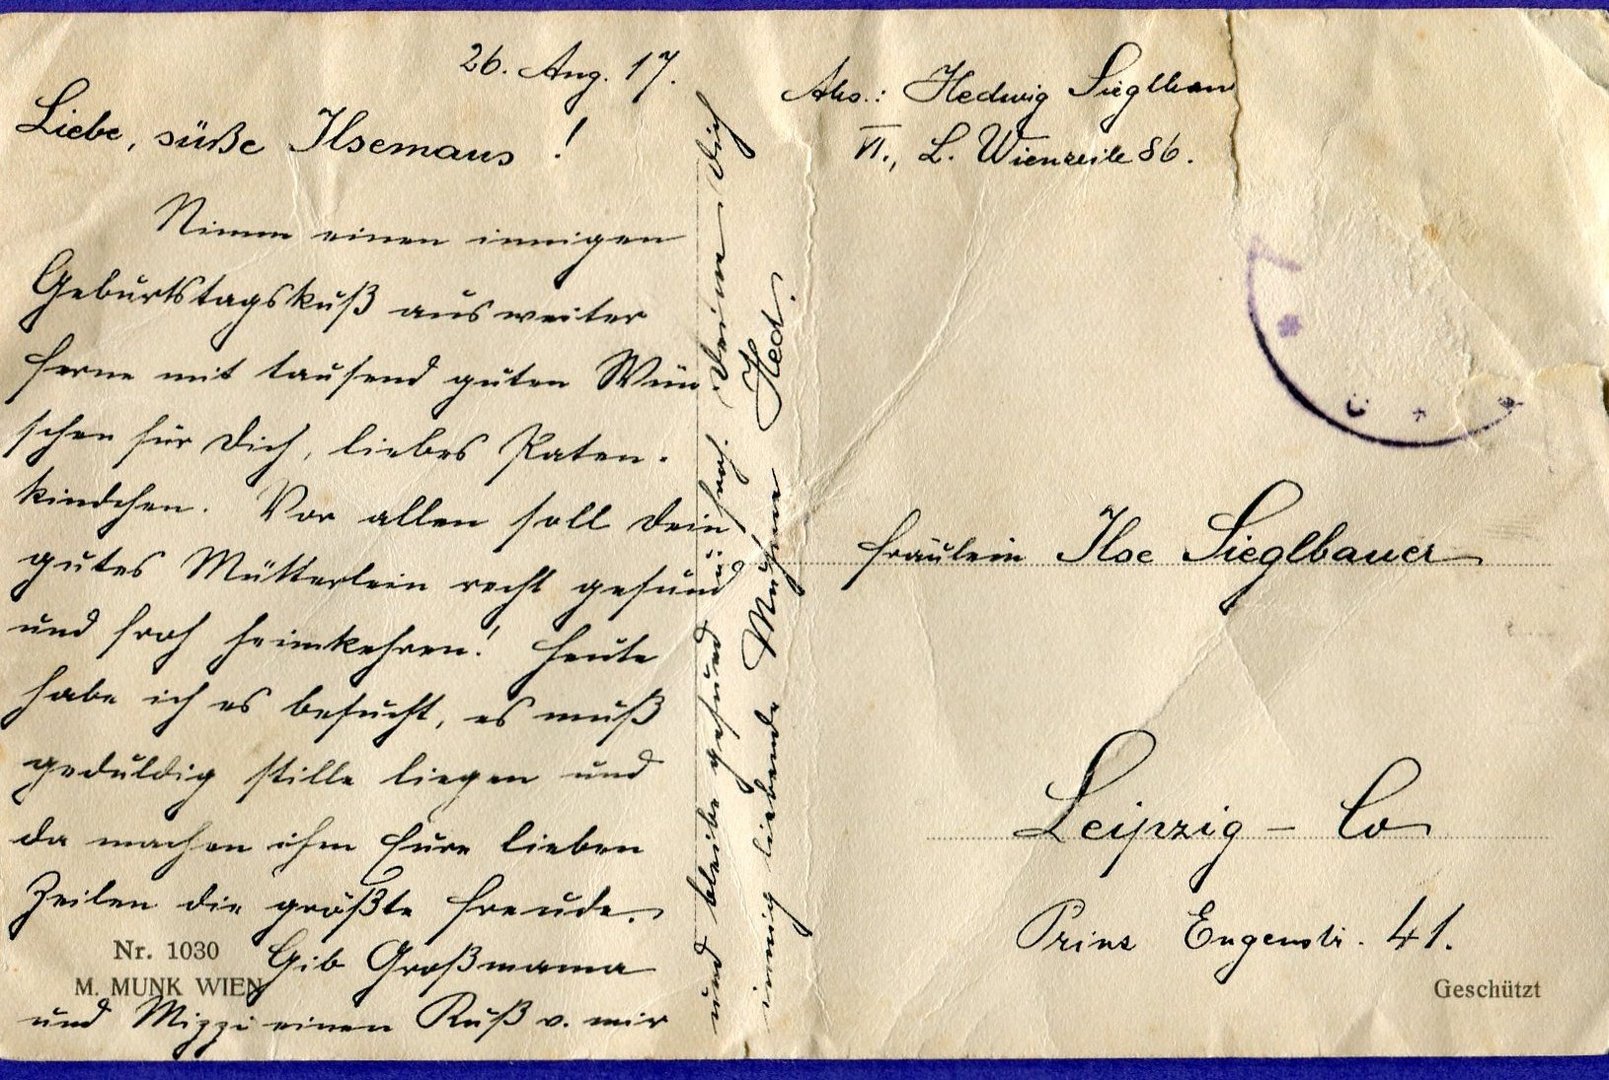 26. Aug. 17.
Liebe, süße Ilsemaus!
Nimm einen innigen
Geburtstagskuß aus weiter
Ferne mit tausend guten Wün
schen für Dich, liebes Paten-
kindchen. Vor allen soll Dein
gutes Mütterlein recht gesund
und froh heimkehren! Heute
habe ich es besucht, es muß
geduldig stille liegen und
da machen ihm Eure lieben
Zeilen die größte Freude.
Gib Großmama
und Mizzi einen Kuß v. mir
und bleibe gesund ü. froh. Deine Dich
innig liebende Muhme Hed.
Nr. 1030
M. MUNK WIEN
Abs.: Hedwig Sieglbau
VI., L. Wienzeile 86.
Fräulein Ilse Sieglbauer
Leipzig – Co
Prinz Eugenstr. 41.
Geschützt